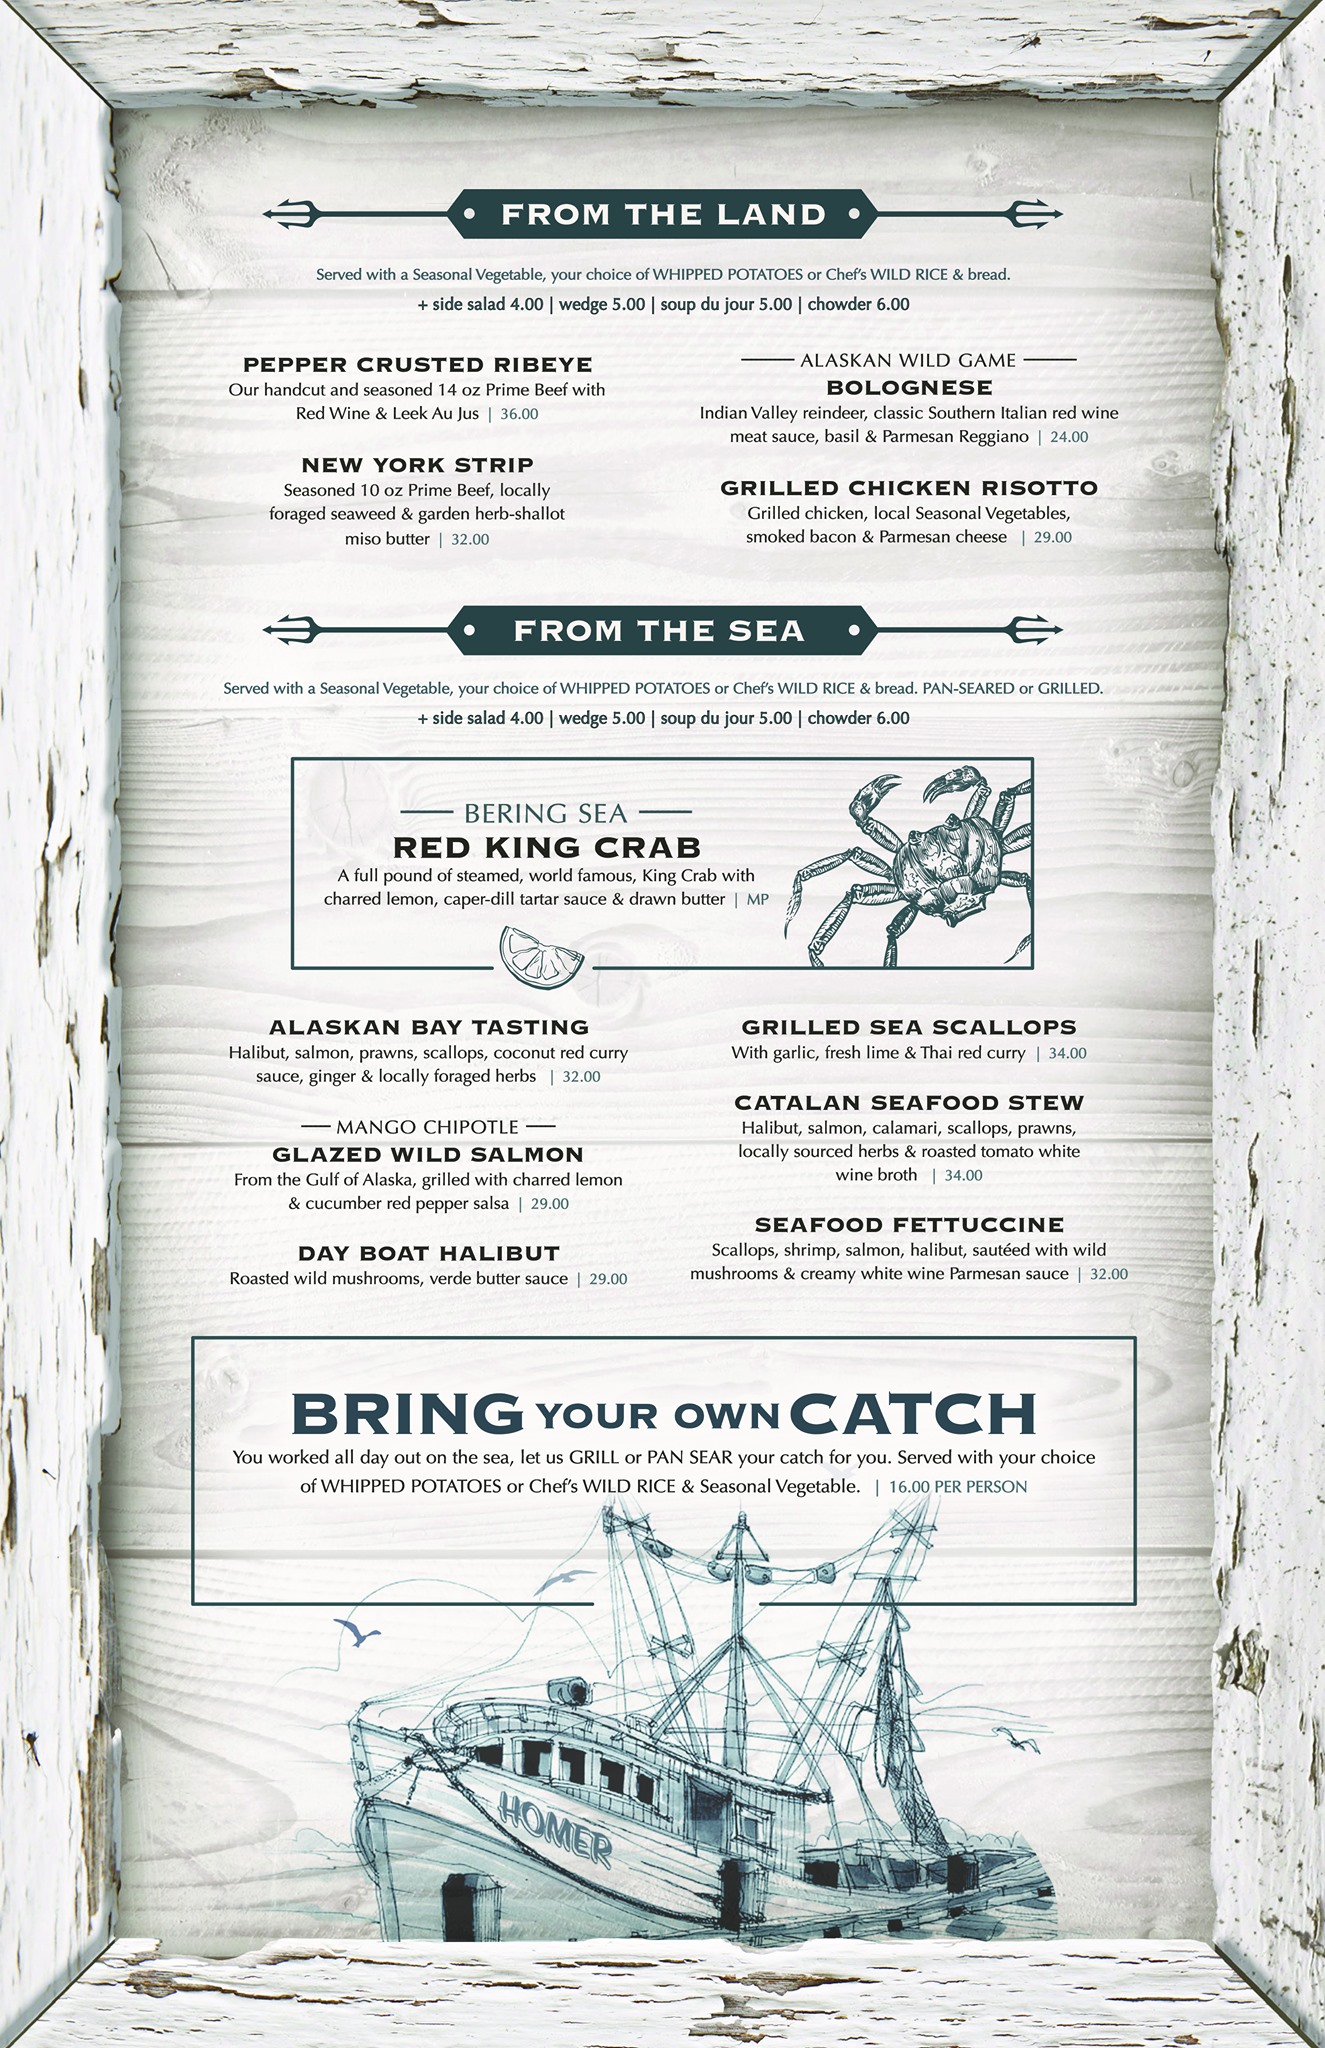 FROM THE LAND
Served with a Seasonal Vegetable, your choice of WHIPPED POTATOES or Chef's WILD RICE & bread.
+ side salad 4.00 | wedge 5.00 | soup du jour 5.00 | chowder 6.00
PEPPER CRUSTED RIBEYE
Our handcut and seasoned 14 oz Prime Beef with
Red Wine & Leek Au Jus | 36.00
NEW YORK STRIP
Seasoned 10 oz Prime Beef, locally
foraged seaweed & garden herb-shallot
miso butter | 32.00
ALASKAN WILD GAME
BOLOGNESE
Indian Valley reindeer, classic Southern Italian red wine
meat sauce, basil & Parmesan Reggiano | 24.00
GRILLED CHICKEN RISOTTO
Grilled chicken, local Seasonal Vegetables,
smoked bacon & Parmesan cheese | 29.00
FROM THE SEA
Served with a Seasonal Vegetable, your choice of WHIPPED POTATOES or Chef's WILD RICE & bread. PAN-SEARED or GRILLED.
+ side salad 4.00 | wedge 5.00 | soup du jour 5.00 | chowder 6.00
BERING SEA
RED KING CRAB
A full pound of steamed, world famous, King Crab with
charred lemon, caper-dill tartar sauce & drawn butter | MP
ALASKAN BAY TASTING
Halibut, salmon, prawns, scallops, coconut red curry
sauce, ginger & locally foraged herbs | 32.00
MANGO CHIPOTLE
GLAZED WILD SALMON
From the Gulf of Alaska, grilled with charred lemon
& cucumber red pepper salsa | 29.00
DAY BOAT HALIBUT
Roasted wild mushrooms, verde butter sauce | 29.00
GRILLED SEA SCALLOPS
With garlic, fresh lime & Thai red curry | 34.00
CATALAN SEAFOOD STEW
Halibut, salmon, calamari, scallops, prawns,
locally sourced herbs & roasted tomato white
wine broth | 34.00
SEAFOOD FETTUCCINE
Scallops, shrimp, salmon, halibut, sautéed with wild
mushrooms & creamy white wine Parmesan sauce | 32.00
BRING YOUR OWN CATCH
You worked all day out on the sea, let us GRILL or PAN SEAR your catch for you. Served with your choice
of WHIPPED POTATOES or Chef's WILD RICE & Seasonal Vegetable. | 16.00 PER PERSON
HOMER